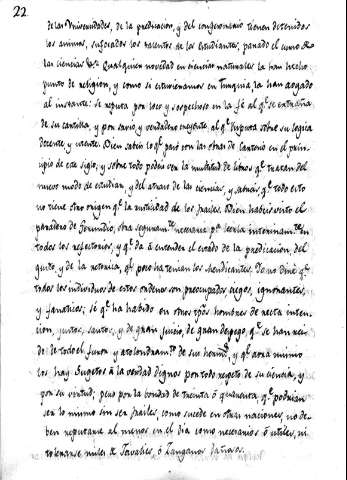 22
de las Universidades, de la predicacion, y del confesonario tienen detenidos
los animos, sufocados los talentos de los estudiantes, parado el curso de
las ciencias &c. Qualquiera novedad en ciencias naturales la han hecho
punto de religion, y como si estuvieramos en Turquia la han aogado
al instante: se reputa por loco y sospechoso en la fé al q.e se extraña
de su cartilla, y por savio, y verdadero creyente, al q.e disputa sobre su logica
docente, y utente. Bien sabeis lo q.e pasó con las obras de en el prin-
cipio de este siglo, y sobre todo podeis ver la multitud de libros q.e tratan del
nuevo modo de estudiar, y del atraso de las ciencias, y sabreis q.e todo esto
no tiene otro origen q.e la multitud de los frailes. Bien habeis visto el
paradero de Gerundio, obra seguram.te necesaria p.a leerla interminam.te en
todos los refectorios, y q.e dá á entender el estado de la predicacion, del
gusto, y de la retorica, q.e poco ha tenian los mendicantes. Yo no diré q.e
todos los individuos de estos ordenes son preocupados ciegos, ignorantes,
y fanaticos; sé q.e ha habido en otros tpos hombres de recta inten-
cion, justos, santos, y de gran juicio, de gran despego, q.e se han rei-
do de todo el furor y atolondram.to de sus herm.s, y q.e aora mismo
los hay sugetos á la verdad dignos por todo respeto de su ciencia, y
por su virtud; pero por la bondad de treinta ó quarenta q.e podrian
ser lo mismo sin ser frailes, como sucede en otras naciones, no de-
ben reputarse al menos en el dia como necesarios ó utiles, ni
tolerarse miles de ó Zanganos dañosos.